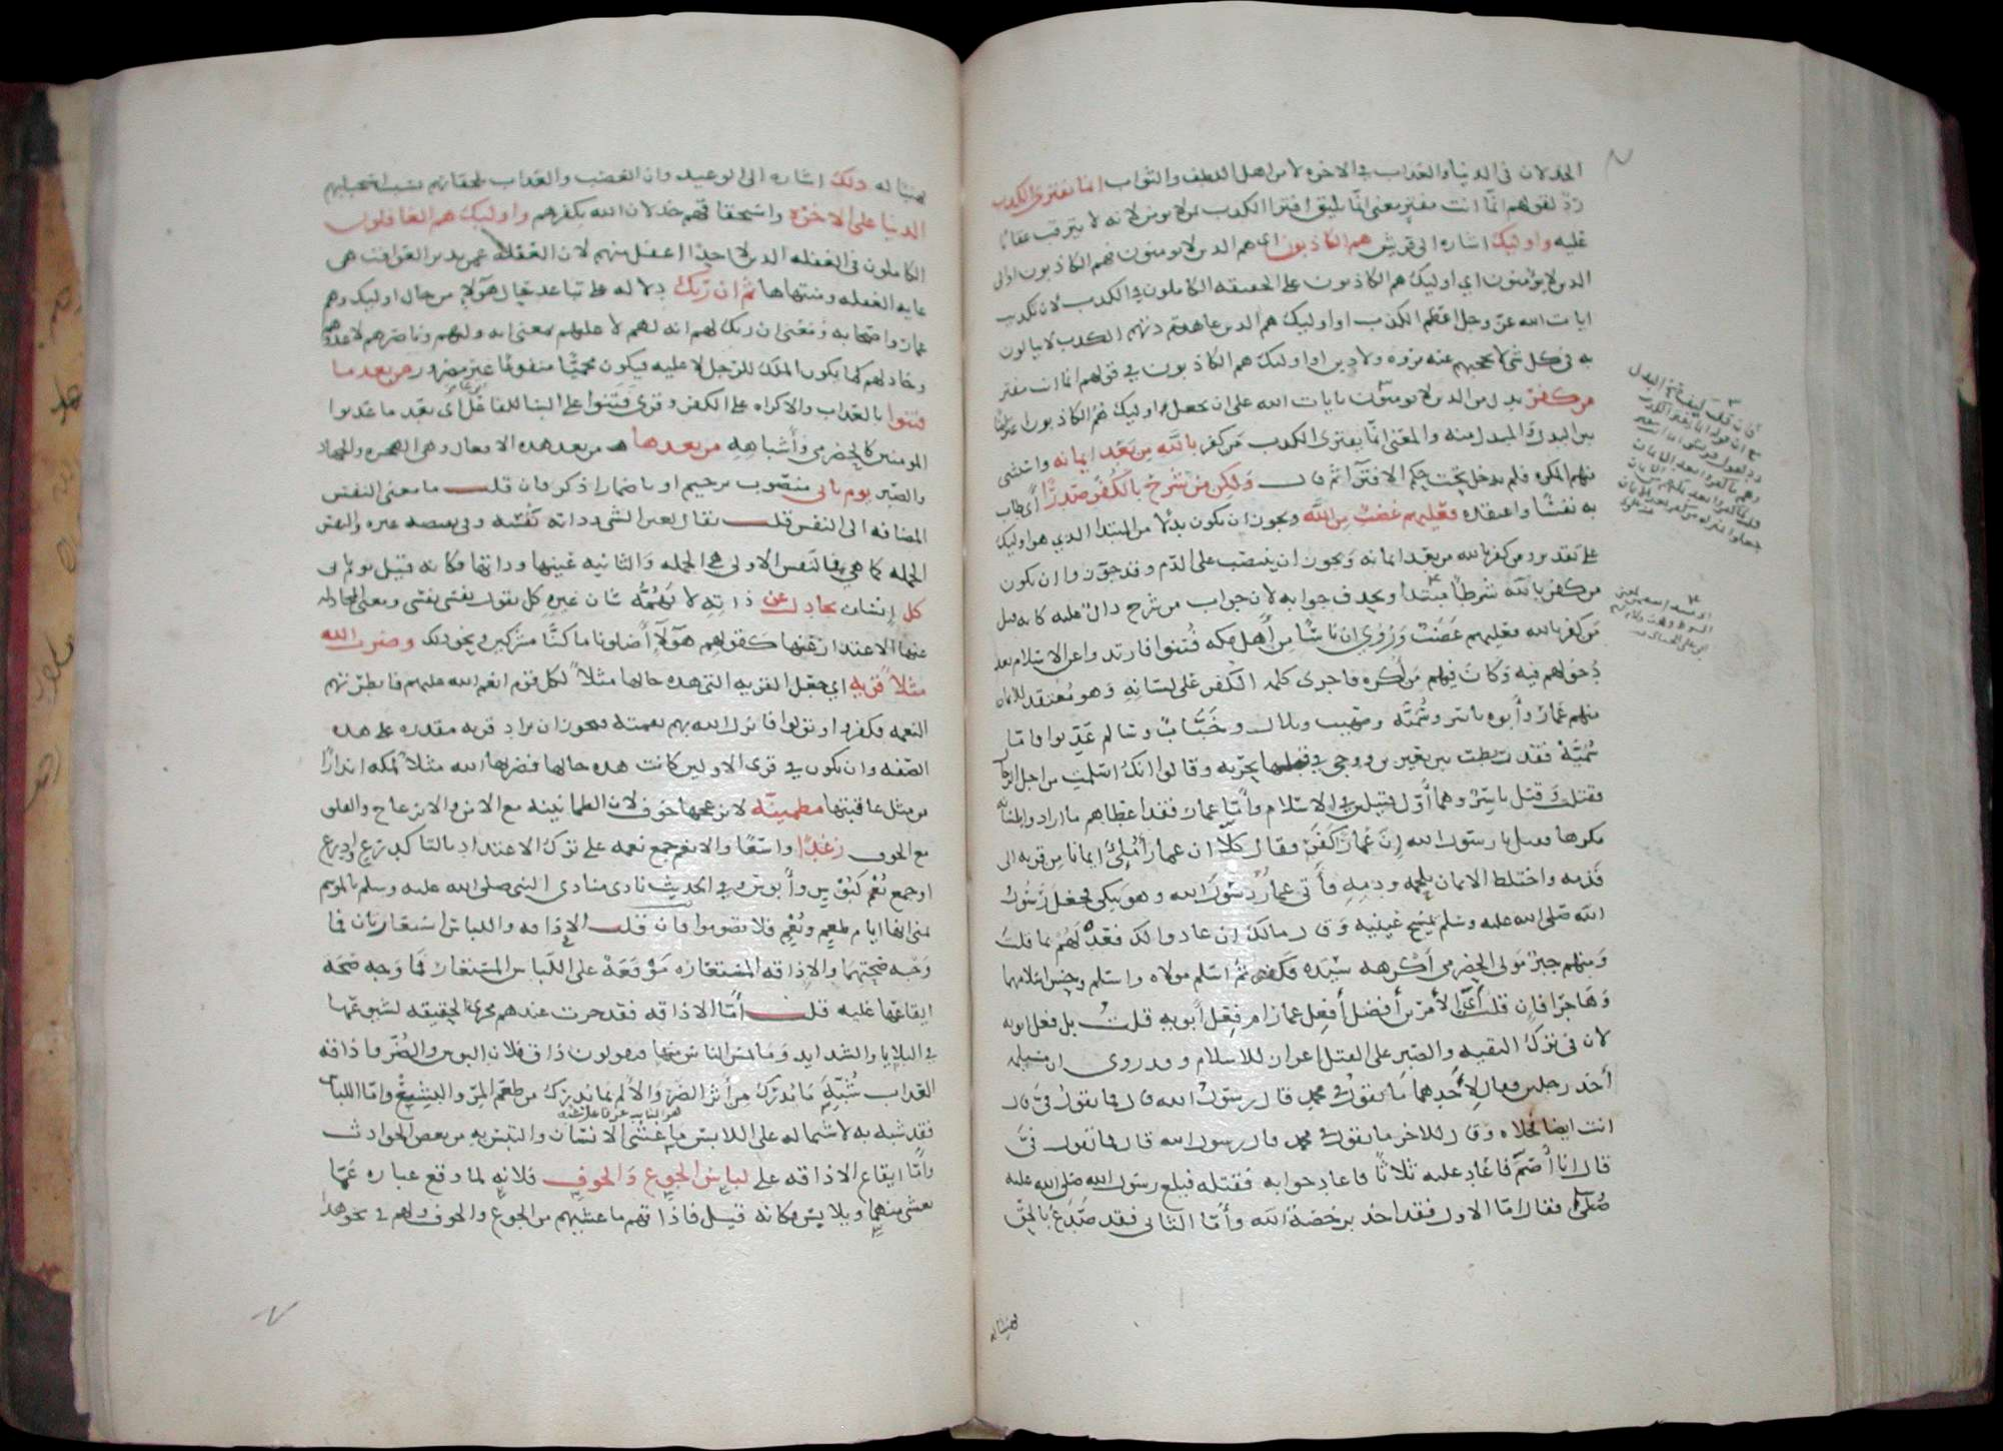 الخذلان في الدنيا والعذاب في الاخره لا من اهل اللطف والثواب انما يفترى الكذب
ردّ لقولهم انّما انت مفترٍ يعنى انّما يليق افترا الكذب بمن لا يومن لانه لا يترقب عقابا
عليه واوليك اشاره الى قريش هم الكاذبون اى هم الدين لا يومنون فهم الكاذبون او الى
الدين لا يؤمنون اي اوليك هم الكاذبون على الحقيقه الكاملون في الكذب لان تكذيب
ايات الله عزّ وجل اعظم الكذب او اوليك هم الدين عادتهم الكذب لا يبالون
به في كل شى لا يحجبهم عنه مروه ولا دين او اوليك هم الكاذبون في قولهم انما انت مفتر
من كفر بدل من الدين لا يومنون بايات الله على ان يجعل واوليك هم الكاذبون اعتراضًا
بين البدل والمبدل منه والمعنى انّما يفترى الكذب من كفر بالله من بعد ايمانه واستثنى
منهم المكره فلم يدخل تحت حكم الافترا ثم قال ولكن من شرح بالكفر صدرًا أي طاب
به نفسًا واعتقده فعليهم غضب من الله ويجوز ان يكون بدلا من المبتدا الدي هو اوليك
على تقدير ومن كفر بالله من بعد ايمانه ويجوز ان ينتصب على الذم وقد جوّزوا ان يكون
من كفر بالله شرطًا مبتدا ويحذف جوابه لان جواب من شرح دال عليه كانه قيل
من كفر بالله فعليهم غضب وروي ان ناسًا من أهل مكه فتنوا فارتدوا عن الاسلام بعد
دخولهم فيه وكان فيهم من أكره فاجرى كلمه الكفر على لسانه وهو معتقد للايمان
منهم عمار وأبوه ياسر وسُميّه وصهيب وبلال وخبّاب وسالم عذبوا فامّا
سُميّة فقد ربطت بين بعيرين ووجى في قبلها بحربه وقالوا انك اسلمت من اجل الرجال
فقتلت وقتل ياسر وهما أوّل قتيلين في الاسلام وأمّا عمار فقد اعطاهم ما ارادوا بلسانه
مكرها فقيل يا رسول الله إنّ عمارًا كفر فقال كلّا ان عمارًا مُلئ ايمانا من قرنه الى
قدمه واختلط الايمان بلحمه ودمه فأتى عمارٌ رسول الله وهو يبكي فجعل رسول
الله صلى الله عليه وسلم يمسح عينيه وقال مالك ان عادوا لك فعد لهم بما قلت
ومنهم جبر مولى الحضرمى أكرهه سيّده فكفر ثم اسلم مولاه واسلم وحسن اسلامهما
وهاجرا فان قلت أىّ الأمرين أفضل أفعل عمار ام فعل أبويه قلت بل فعل ابويه
لان في ترك التقيه والصبر على القتل اعزازا للاسلام وقد روى ان مسيلمه
أخذ رجلين فقال لأحدهما ما تقول في محمد قال رسول الله قال فما تقول فيّ قال
انت ايضا فخلاه وقال للاخر ما تقول في محمد قال رسول الله قال فما تقول فيّ
قال انا أصمّ فاعاد عليه ثلاثًا فاعاد جوابه فقتله فبلغ رسول الله صلى الله عليه
وسلم فقال امّا الاول فقد اخذ برخصة الله وأمّا الثانى فقد صدع بالحق
فهنيئا له
فهنيئا له ذلك اشاره الى الوعيد وان الغضب والعذاب يلحقانهم بسبب استحبابهم
الدنيا على الاخره واستحقاقهم خذلان الله بكفرهم واوليك هم الغافلون
الكاملون في الغفله الدين لا احد اغفل منهم لان الغفله عن تدبر العواقب هى
غايه الغفله ومنتهاها ثم ان ربك دلاله على تباعد حال هؤلاء من حال اوليك وهم
عمار واصحابه ومعنى ان ربك لهم انه لهم لا عليهم بمعنى انه وليهم وناصرهم لا عدوهم
وخاذلهم كما يكون الملك للرجل لا عليه فيكون محميًّا منفوعًا غير مضرور من بعد ما
فتنوا بالعذاب والاكراه على الكفر وقرى فَتنوا على البنا للفاعل أى بعد ما عذبوا
المومنين كالحضرمى وأشباهه من بعدها من بعد هذه الافعال وهى الهجره والجهاد
والصبر يوم ياتى منصوب برحيم او باضمار اذكر فان قلت ما معنى النفس
المضافه الى النفس قلت يقال لعين الشى وذاته نفسه وفي نقيضه غيره والنفس
الجمله كما هي فالنفس الاولى هي الجمله والثانيه عينها وذاتها فكانه قيل يوم ياتى
كل إنسان يجادل عن ذاته لا يهمّه شان غيره كل يقول نفسى نفسى ومعنى المجادله
عنها الاعتذار عنها كقولهم هؤلآ أضلونا ما كنّا مشركين ونحو ذلك وضرب الله
مثلاً قريه اي جعل القريه التى هذه حالها مثلاً لكل قوم انعم الله عليهم فابطرتهم
النعمه فكفروا وتولوا فانزل الله بهم نقمته فيجوز ان يراد قريه مقدره على هذه
الصفه وان يكون في قرى الاولين كانت هذه حالها فضربها الله مثلاً لمكه انذارًا
من مثل عاقبتها مطمينّه لا يزعجها خوف لان الطمانينه مع الامن والانزعاج والقلق
مع الخوف رغدًا واسعًا والانعم جمع نعمه على ترك الاعتداد بالتا كدرع وادرع
او جمع نُعْم كبؤس وأبوس وفي الحديث نادى منادى النبى صلى الله عليه وسلم بالموسم
بمنى انها ايام طعم ونُعْم فلا تصوموا فان قلت الإذاقه واللباس استعارتان فما
وجه صحّتهما والاذاقه المستعاره موقعة على اللباس المستعار فما وجه صحّه
ايقاعها عليه قلت أمّا الاذاقه فقد جرت عندهم مجرى الحقيقه لشيوعها
في البلايا والشدايد وما يمس الناس منها فيقولون ذاق فلان البوس والضرّ واذاقه
العذاب شُبّه ما يُدرك من أثر الضرر والألم بما يُدرك من طعم المرّ والبشع وامّا اللباس
فقد شبه به لاشتماله على اللابس ما غشى الانسان والتبس به من بعض الحوادث
وامّا ايقاع الاذاقه على لباس الجوع والخوف فلانه لما وقع عباره عمّا
يغشى منهما ويلابس فكانه قيل فاذاقهم ما غشيهم من الجوع والخوف ولهم في نحو هذا